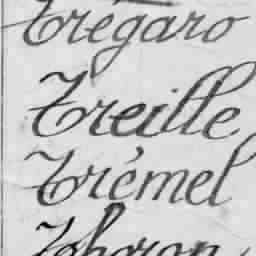 Trégaro
Treille
Trémel